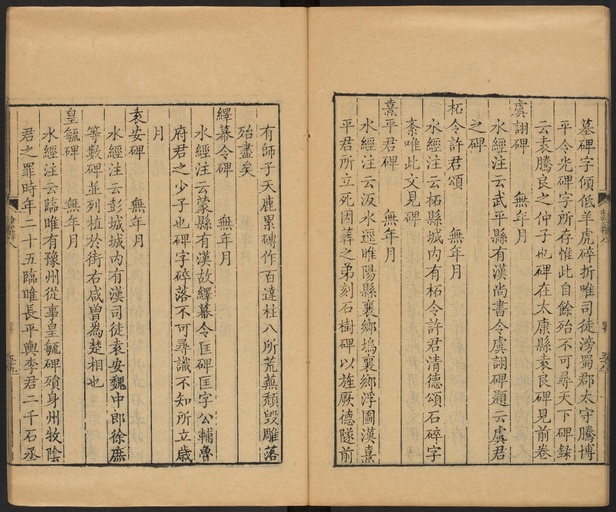 墓碑字傾低羊虎碎折唯司徒滂蜀郡太守騰博
平令光碑字所存惟此自餘殆不可尋天下碑錄
云袁騰良之仲子也碑在太康縣袁良碑見前卷
虞詡碑 無年月
水經注云武平縣有漢尚書令虞詡碑題云虞君
之碑
柘令許君頌 無年月
水經注云柘縣城內有柘令許君清德頌石碎字
紊唯此文見碑
熹平君碑 無年月
水經注云汳水逕睢陽縣襄鄉塢襄鄉浮圖漢熹
平君所立死因葬之弟刻石樹碑以旌厥德隧前
有師子天鹿累磚作百達柱八所荒蕪頹毀雕落
殆盡矣
繹幕令碑 無年月
水經注云蒙縣有漢故繹幕令匡碑匡字公輔魯
府君之少子也碑字碎落不可尋識不知所立歲
月
袁安碑 無年月
水經注云彭城城內有漢司徒袁安魏中郎徐庶
等數碑並列植於街右咸曾為楚相也
皇毓碑 無年月
水經注云臨睢有豫州從事皇毓碑殞身州牧陰
君之罪時年二十五臨睢長平輿李君二千石丞